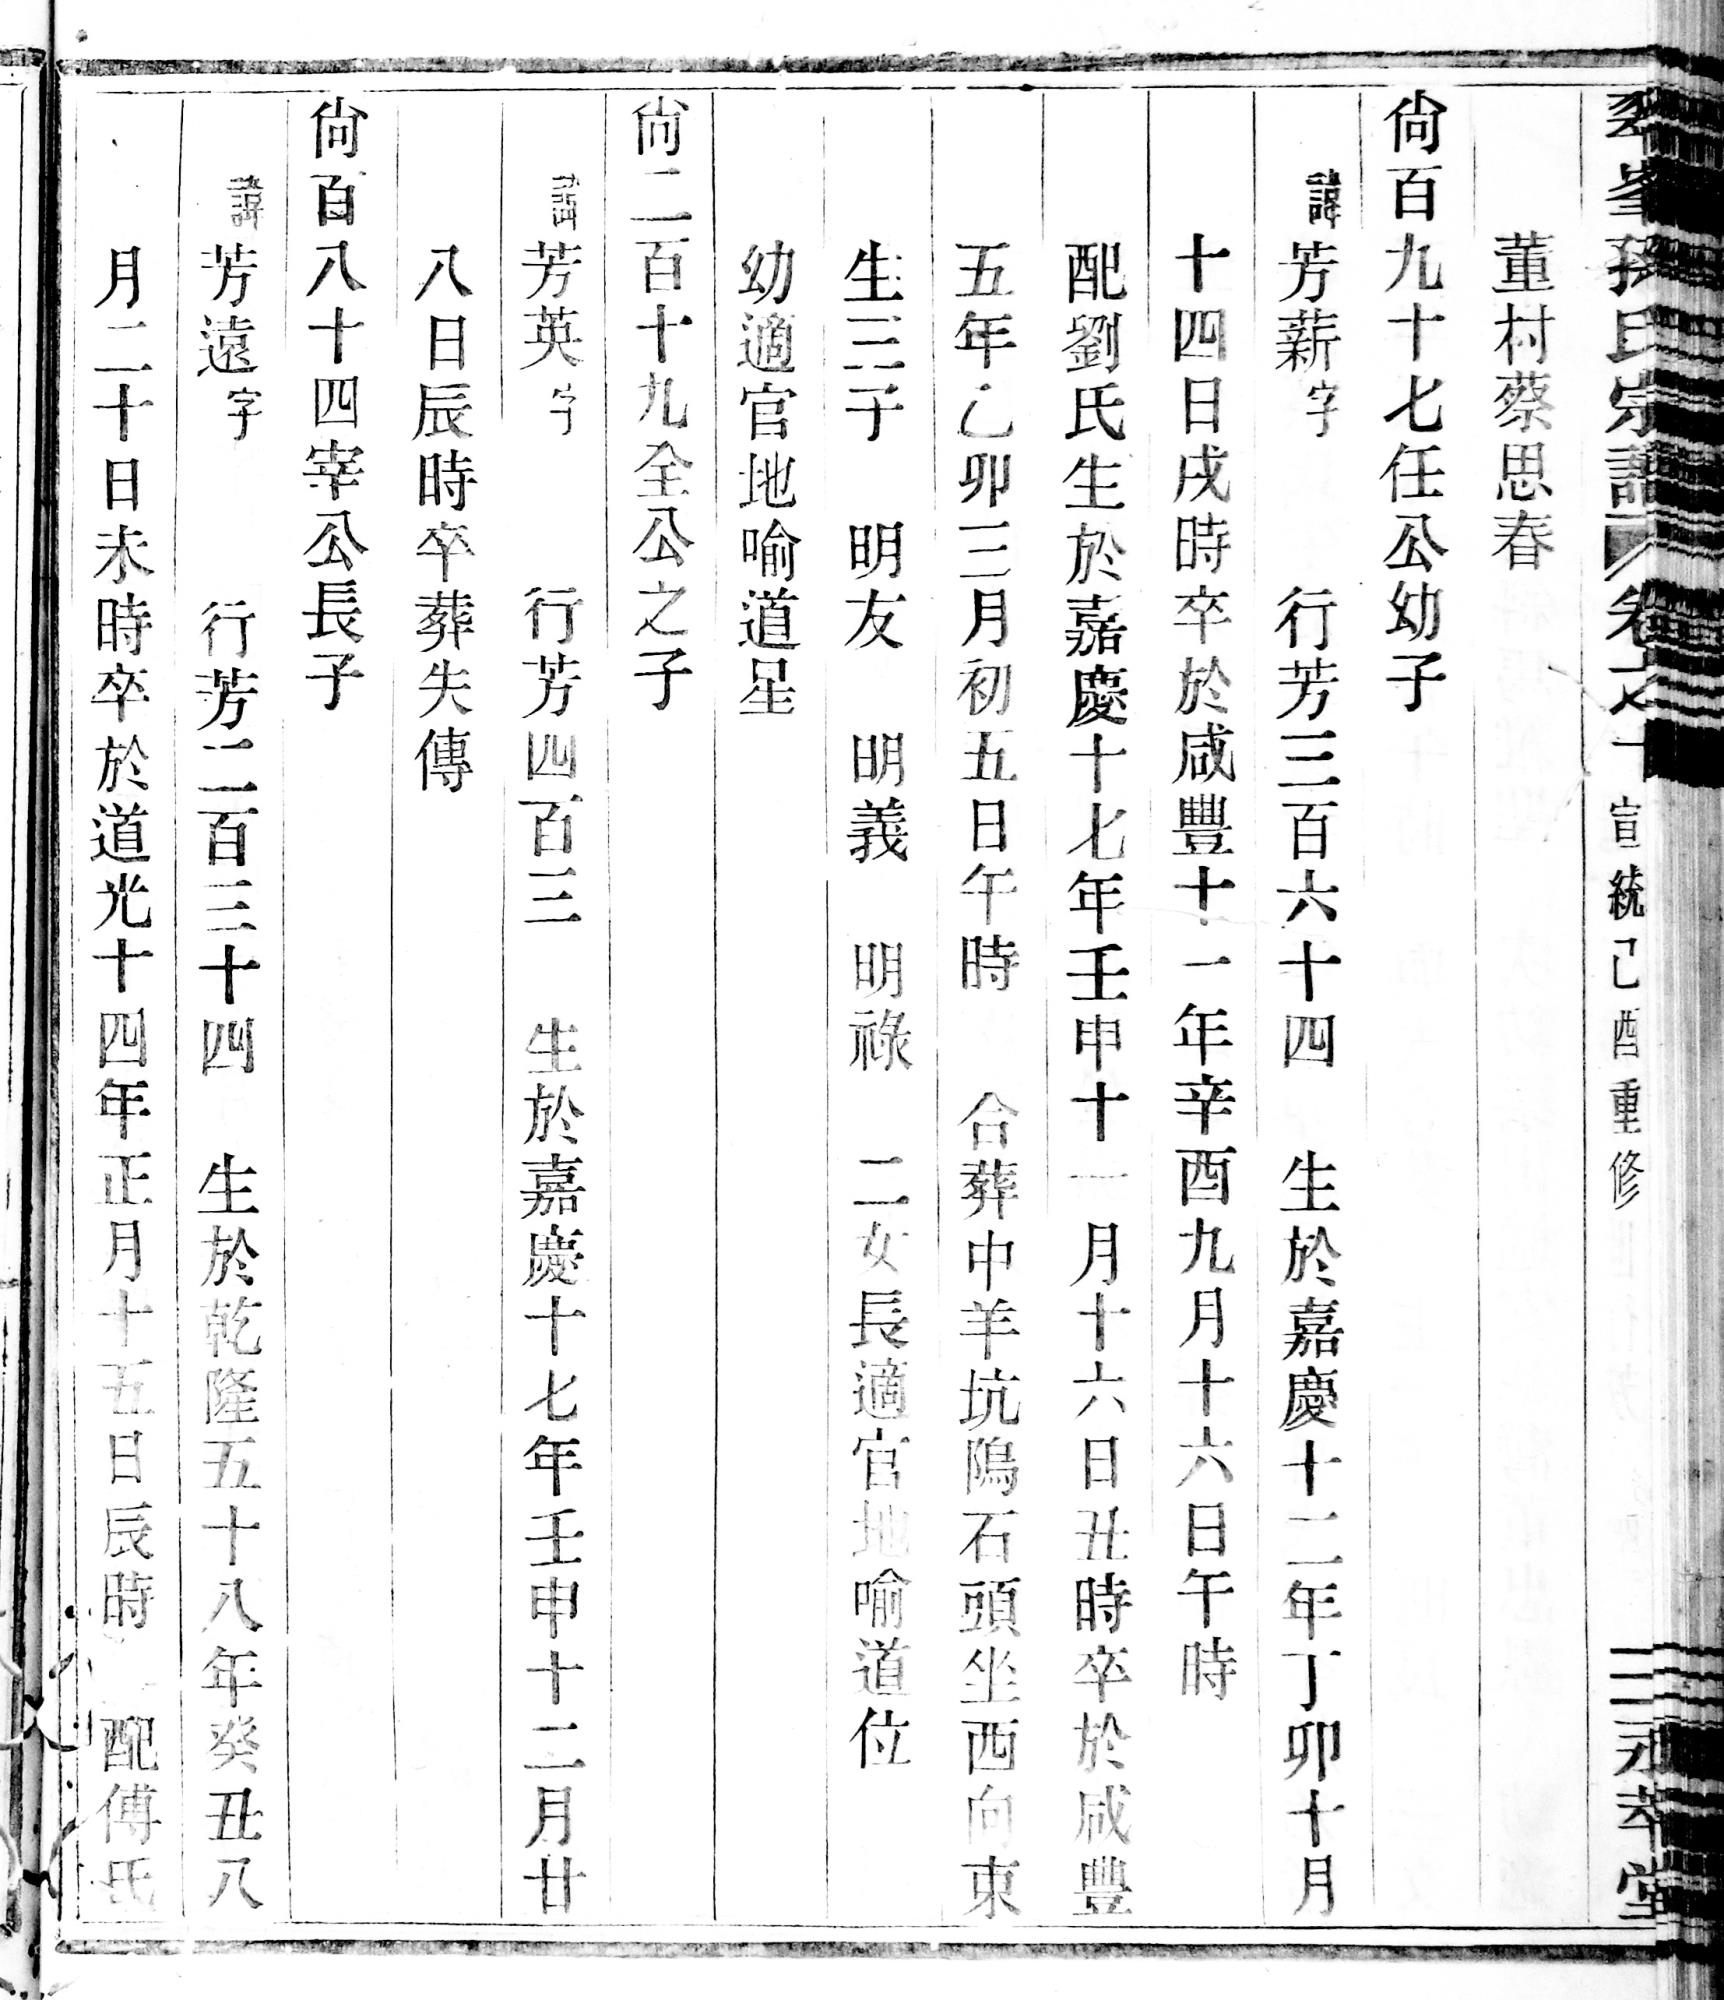 孫氏宗譜 卷之十 宣統己酉重修 永萃堂
董村蔡思春
尙百九十七任公幼子
諱芳薪字 行芳三百六十四 生於嘉慶十二年丁卯十月
十四日戌時卒於咸豐十一年辛酉九月十六日午時
配劉氏生於嘉慶十七年壬申十一月十六日丑時卒於咸豐
五年乙卯三月初五日午時 合葬中羊坑隝石頭坐西向東
生三子 明友 明義 明祿 二女長適官地喻道位
幼適官地喻道星
尙二百十九全公之子
諱芳英字 行芳四百三 生於嘉慶十七年壬申十二月廿
八日辰時卒葬失傳
尙百八十四宰公長子
諱芳遠字 行芳二百三十四 生於乾隆五十八年癸丑八
月二十日未時卒於道光十四年正月十五日辰時 配傅氏